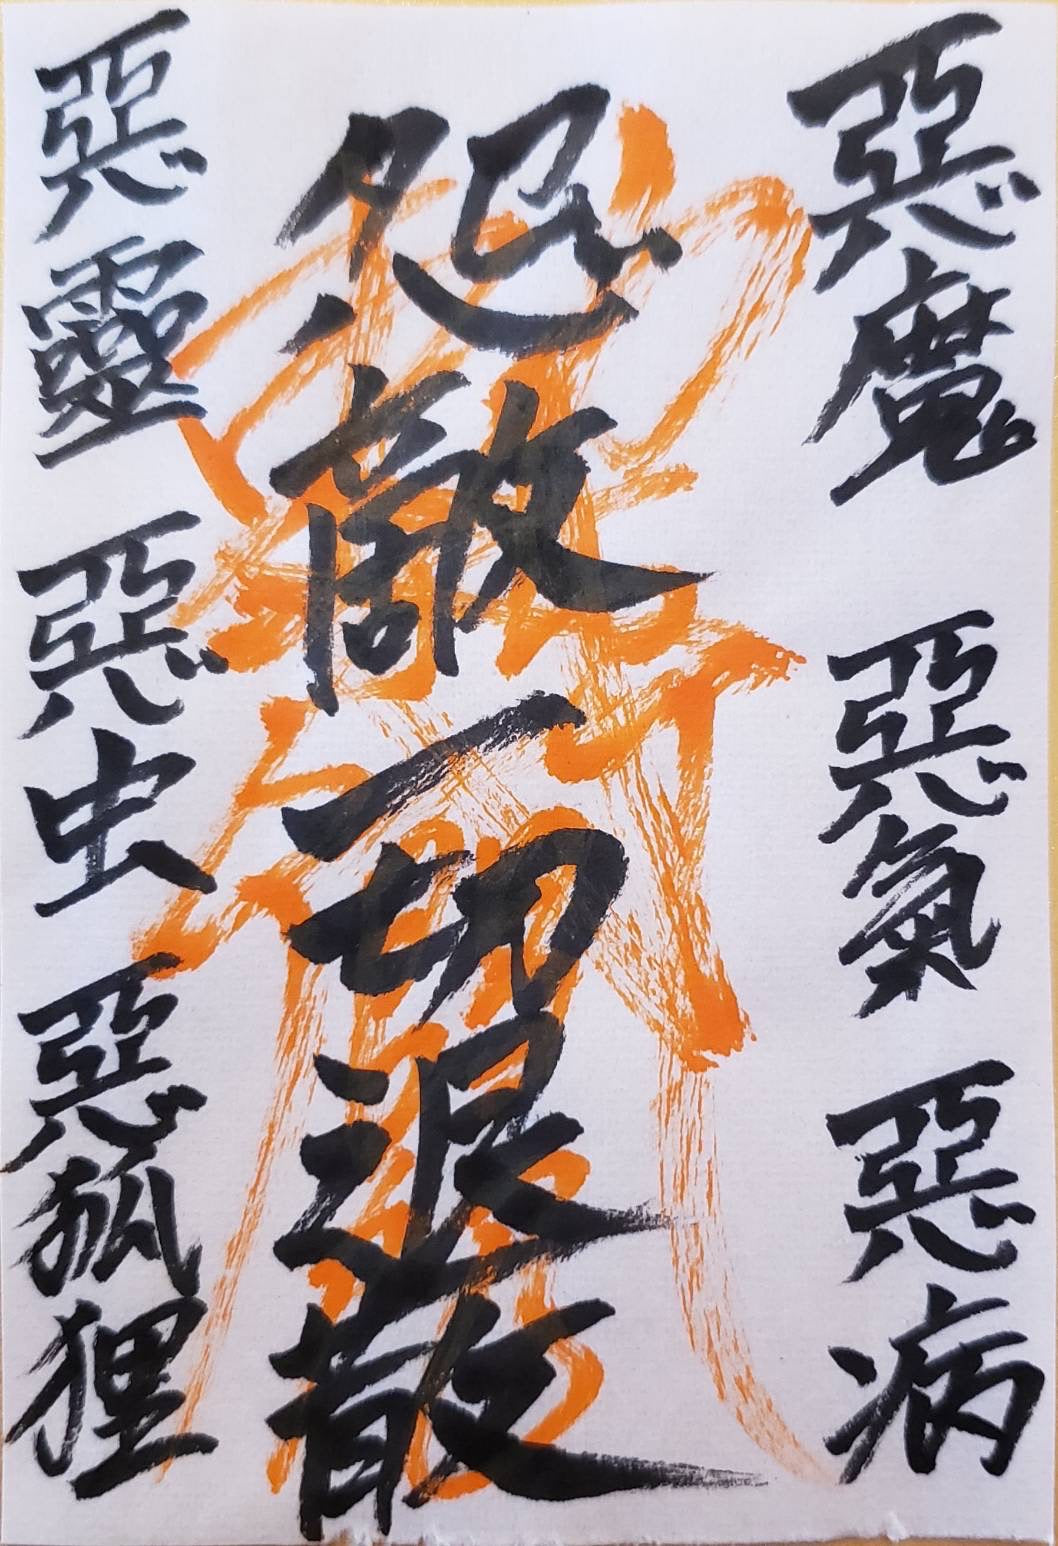 惡魔 惡氣 惡病
怨敵一切退散
惡靈 惡虫 惡狐狸